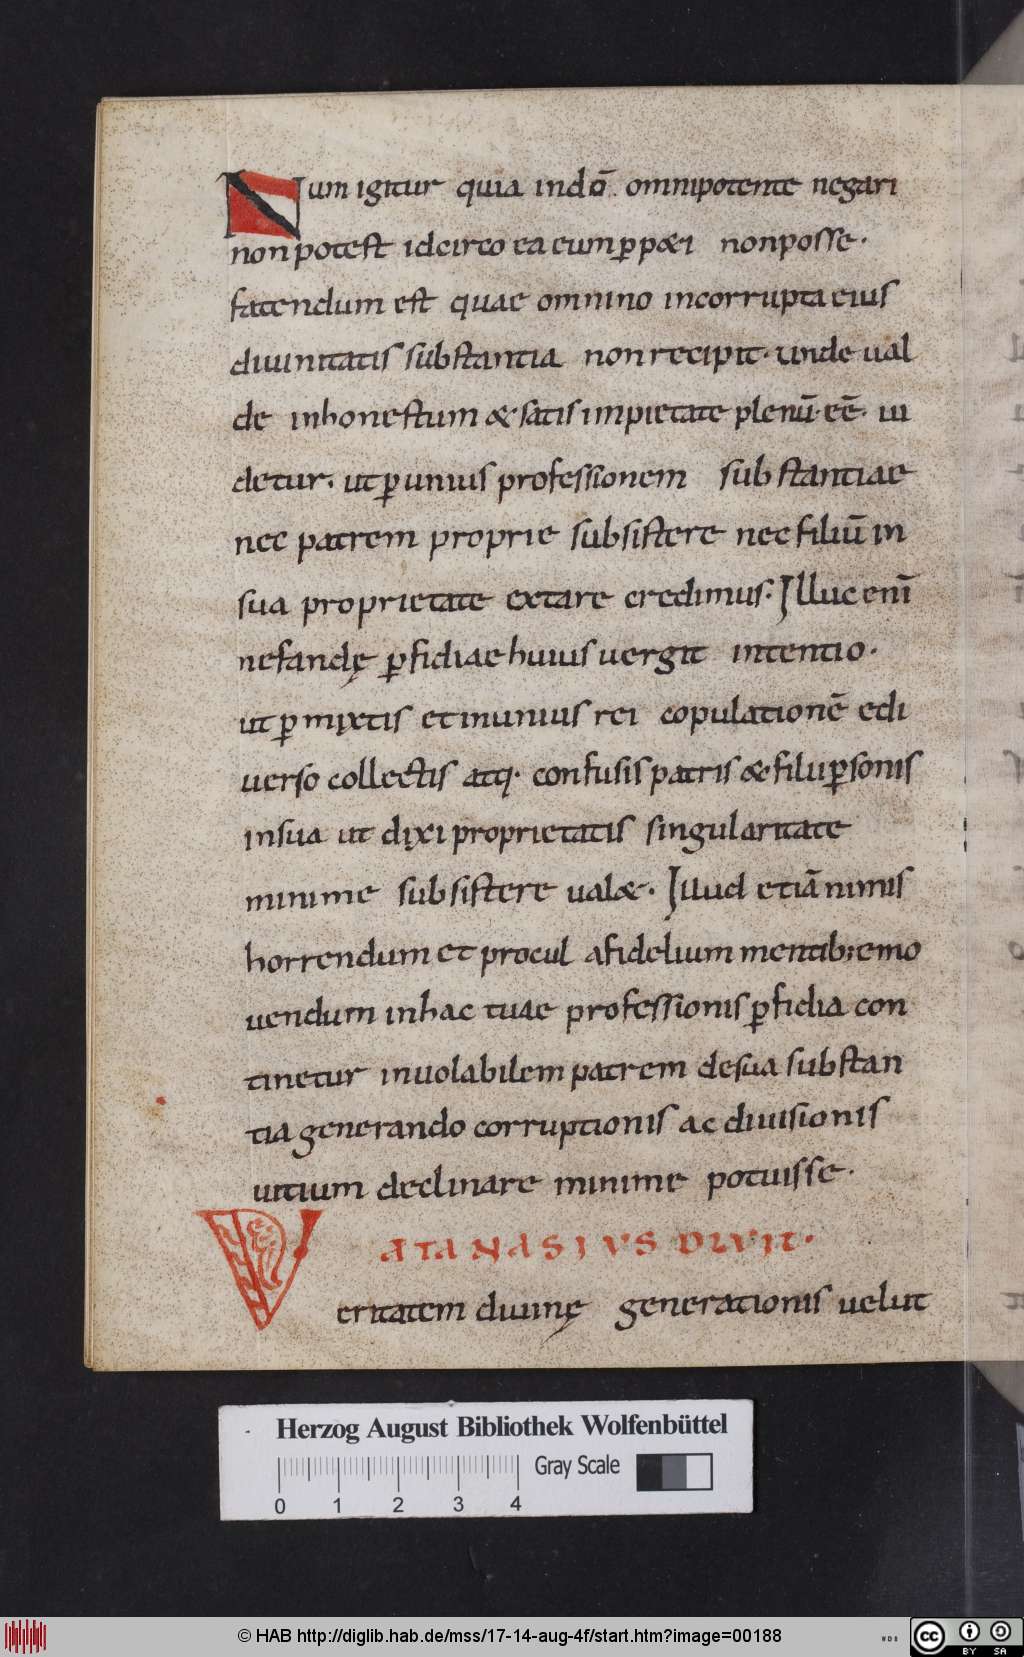 Num igitur quia indō omnipotente negari
non potest idcirco ea eum ꝑpæti non posse·
fatendum est quae omnino incorrupta eius
diuinitatis substantia non recipit· unde ual
de inhonestum &· satis impietate plenū· eē· ui
detur· ut ꝑ unius professionem substantiae
nec patrem proprie subsistere nec filiū in
sua proprietate extare credimus· Illuc enī
nefandę ꝑfidiae huius vergit intentio·
ut ꝑmixtis et in unius rei copulationē e di
verso collectis atq· confusis patris & filii ꝑsonis
in sua ut dixi proprietatis singularitate
minime subsistere ual&· Illud etiā nimis
horrendum et procul a fidelium mentib; emo
uendum in hac tuae professionis ꝑfidia con
tinetur inuolabilem patrem de sua substan
tia generando corruptionis ac diuisionis
uitium declinare minime potuisse·
ATANASIVS DIXIT·
Veritatem diuinę generationis uelut
Herzog August Bibliothek Wolfenbüttel
Gray Scale
0 1 2 3 4
© HAB http://diglib.hab.de/mss/17-14-aug-4f/start.htm?image=00188
WDB
cc BY SA